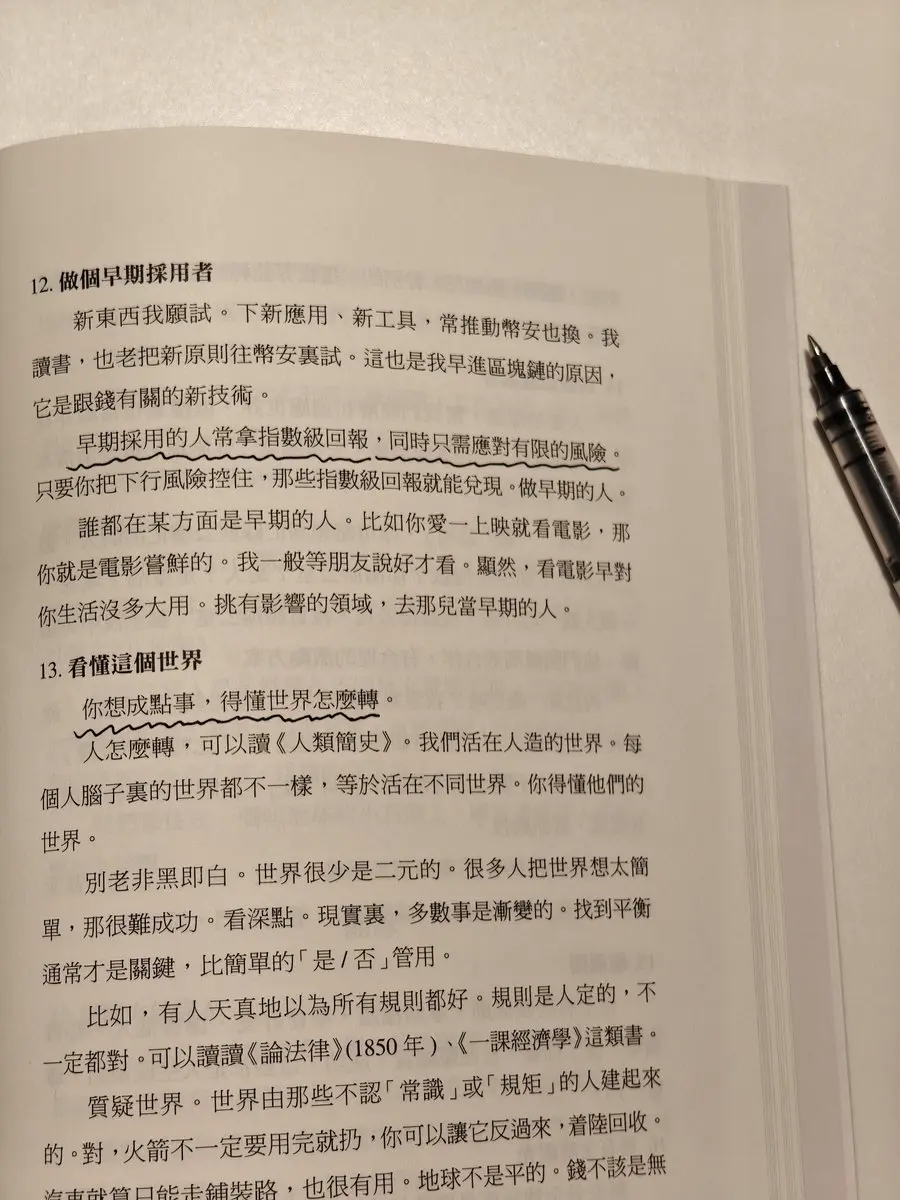 12. 做個早期採用者
新東西我願試。下新應用、新工具，常推動幣安也換。我
讀書，也老把新原則往幣安裏試。這也是我早進區塊鏈的原因，
它是跟錢有關的新技術。
早期採用的人常拿指數級回報，同時只需應對有限的風險。
只要你把下行風險控住，那些指數級回報就能兌現。做早期的人。
誰都在某方面是早期的人。比如你愛一上映就看電影，那
你就是電影嘗鮮的。我一般等朋友說好才看。顯然，看電影早對
你生活沒多大用。挑有影響的領域，去那兒當早期的人。
13. 看懂這個世界
你想成點事，得懂世界怎麼轉。
人怎麼轉，可以讀《人類簡史》。我們活在人造的世界。每
個人腦子裏的世界都不一樣，等於活在不同世界。你得懂他們的
世界。
別老非黑即白。世界很少是二元的。很多人把世界想太簡
單，那很難成功。看深點。現實裏，多數事是漸變的。找到平衡
通常才是關鍵，比簡單的「是 / 否」管用。
比如，有人天真地以為所有規則都好。規則是人定的，不
一定都對。可以讀讀《論法律》(1850 年 )、《一課經濟學》這類書。
質疑世界。世界由那些不認「常識」或「規矩」的人建起來
的。對，火箭不一定要用完就扔，你可以讓它反過來，着陸回收。
汽車就算只能走鋪裝路，也很有用。地球不是平的。錢不該是無